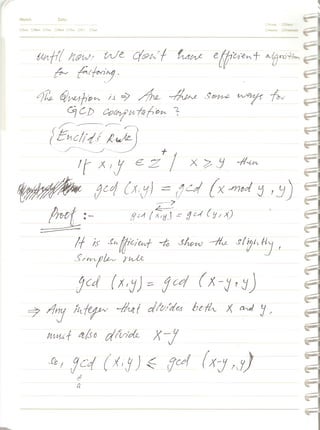 until now. we don't have efficient algorithm
for factoring.
The Question is ⇒ Are there some ways for
GCD Computation ?
Euclid's Rule
If x, y ∈ Z⁺ | x ≥ y then
gcd (x,y) = gcd (x mod y , y)
Proof :-
gcd (x,y) = gcd (y,x)
It is sufficient to show the slightly,
Simpler rule
gcd (x,y) = gcd (x-y, y)
⇒ Any integer that divides both x and y,
must also divide x-y
so, gcd (x,y) ≤ gcd (x-y, y)
a